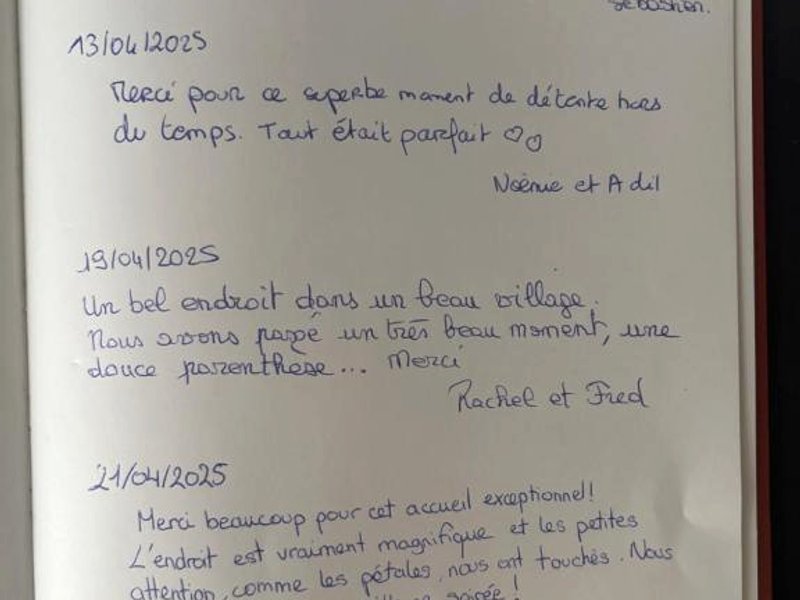 Sébastien.
13/04/2025
Merci pour ce superbe moment de détente hors
du temps. Tout était parfait ♡♡
Noémie et Adil
19/04/2025
Un bel endroit dans un beau village.
Nous avons passé un très beau moment, une
douce parenthèse... Merci
Rachel et Fred
21/04/2025
Merci beaucoup pour cet accueil exceptionnel!
L'endroit est vraiment magnifique et les petites
attention, comme les pétales, nous ont touchés. Nous
soirée!